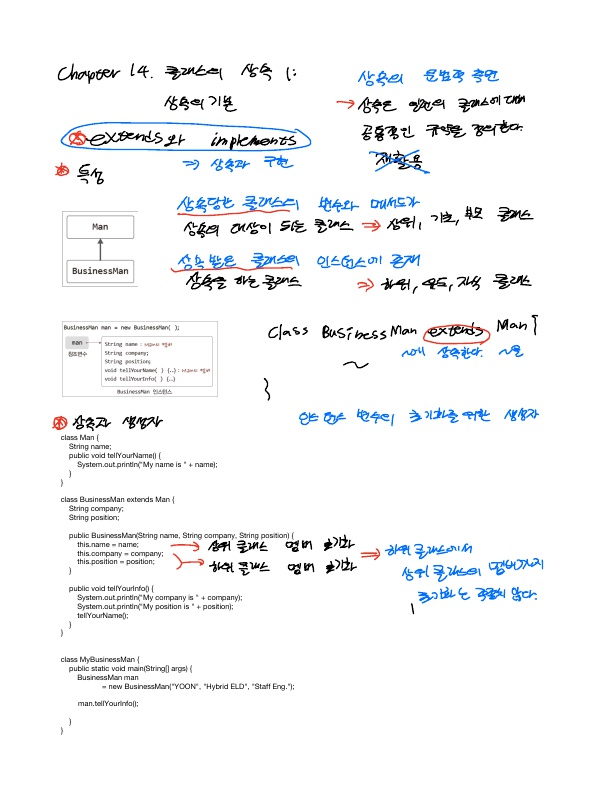 Chapter 14. 클래스의 상속 1:
상속의 기본
* extends와 implements
⇒ 상속과 구현
상속의 문법적 측면
→ 상속은 일련의 클래스에 대해
공통적인 규약을 정의한다.
재활용
* 특성
Man
BusinessMan
상속당한 클래스의 변수와 메서드가
상속의 대상이 되는 클래스 ⇒ 상위, 기초, 부모 클래스
상속 받은 클래스의 인스턴스에 존재
상속을 하는 클래스 ⇒ 하위, 유도, 자식 클래스
BusinessMan man = new BusinessMan( );
man
참조변수
String name :
String company;
String position;
void tellYourName( ) {…} :
void tellYourInfo( ) {…}
BusinessMan 인스턴스
Class BusinessMan extends Man {
~에 상속한다. ~을
~
}
* 상속과 생성자
인스턴스 변수의 초기화를 위한 생성자
class Man {
String name;
public void tellYourName() {
System.out.println("My name is " + name);
}
}
class BusinessMan extends Man {
String company;
String position;
public BusinessMan(String name, String company, String position) {
this.name = name; → 상위 클래스 멤버 초기화
this.company = company;
this.position = position; → 하위 클래스 멤버 초기화
}
⇒ 하위 클래스에서
상위 클래스의 멤버까지
초기화는 적절치 않다.
public void tellYourInfo() {
System.out.println("My company is " + company);
System.out.println("My position is " + position);
tellYourName();
}
}
class MyBusinessMan {
public static void main(String[] args) {
BusinessMan man
= new BusinessMan("YOON", "Hybrid ELD", "Staff Eng.");
man.tellYourInfo();
}
}